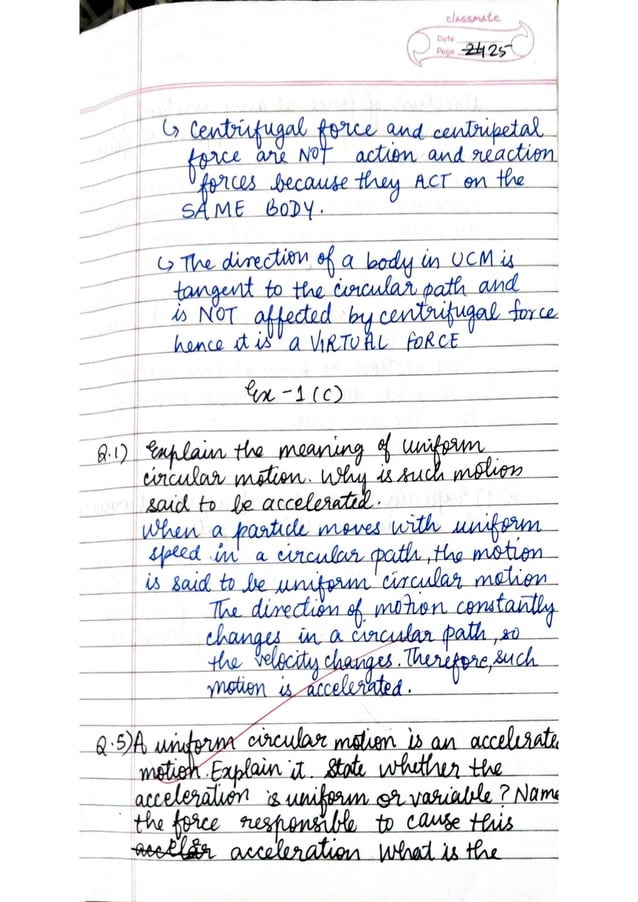 classmate
Date
Page 24 25
↳ Centrifugal force and centripetal
force are NOT action and reaction
forces because they ACT on the
SAME BODY.
↳ The direction of a body in UCM is
tangent to the circular path and
is NOT affected by centrifugal force
hence it is a VIRTUAL FORCE
Ex - 1 (C)
Q.1) Explain the meaning of uniform
circular motion. Why is such motion
said to be accelerated.
When a particle moves with uniform
speed in a circular path, the motion
is said to be uniform circular motion
The direction of motion constantly
changes in a circular path, so
the velocity changes. Therefore, such
motion is accelerated.
Q.5) A uniform circular motion is an accelerate
motion. Explain it. State whether the
acceleration is uniform or variable? Name
the force responsible to cause this
acceleration What is the